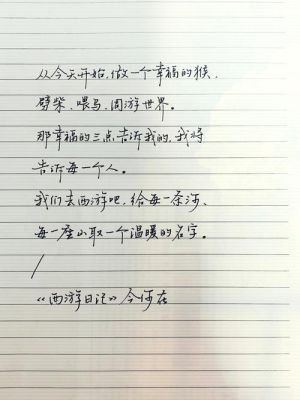 从今天开始,做一个幸福的猴,
劈柴、喂马、周游世界。
那幸福的三点告诉我的,我将
告诉每一个人。
我们去西游吧,给每一条河、
每一座山取一个温暖的名字。
/
《西游日记》今何在